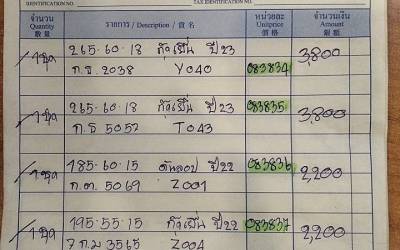 IDENTIFICATION NO. TAX IDENTIFICATION NO.
จำนวน รายการ / Description / 貨名 หน่วยละ จำนวนเงิน
Quantity Unitprice Amount
數量 價格 銀額
1 ชุด 265-60-18 ปี23 083834 3,800
ก.ธ 2038 Y040
1 ชุด 265-60-18 ปี23 083835 3,800
ก.ธ 5057 T043
1 ชุด 185-60-15 ดันลอป ปี22 083836 2,200
ก.ต. 5069 Z001
1 ชุด 195-55-15 ปี22 083837 2,200
7 ก.ม 3565 Z004